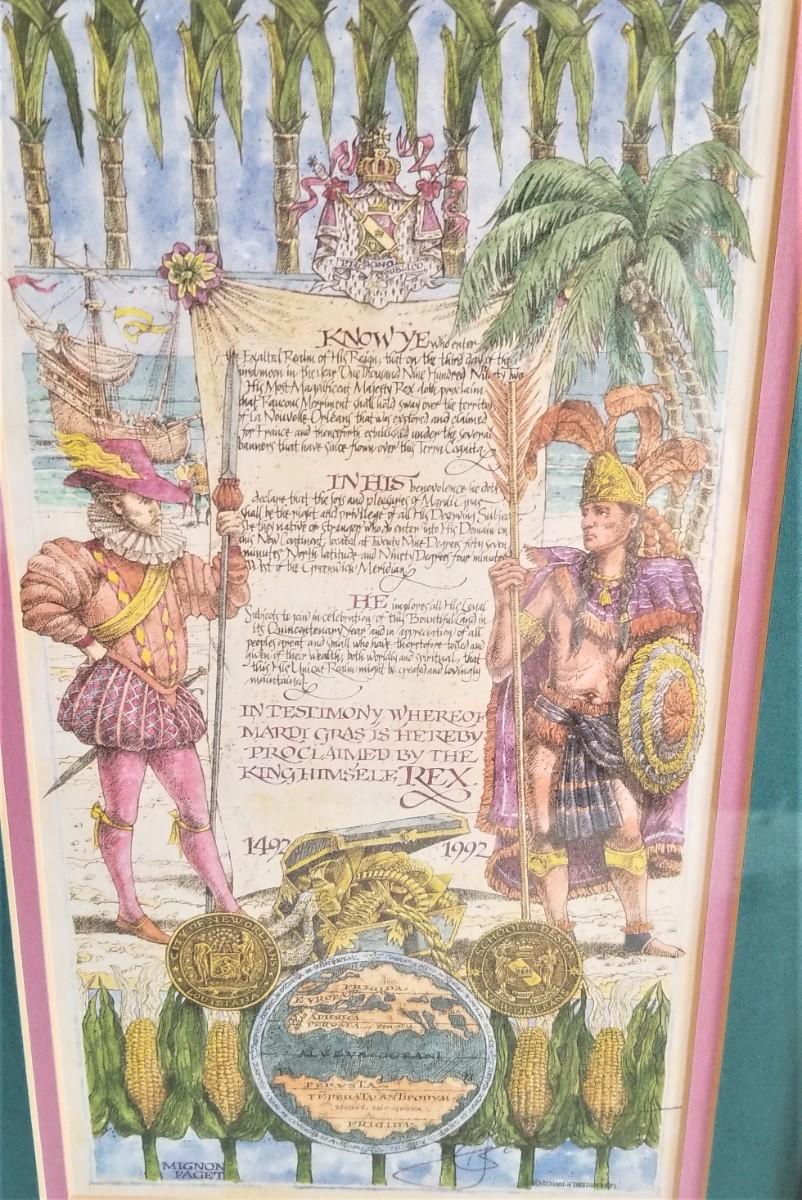 PRO BONO PUBLICO
KNOW YE who enter
Exalted Realm of His Reign, that on the third day of the
predmoon in the year One Thousand Nine Hundred Ninety Two
His Most Magnificent Majesty Rex doth proclaim
that Raucous Merriment shall hold sway over the territory
of La Nouvelle Orléans that was explored and claimed
for France and thenceforth established under the several
banners that have since flown over this Terra Cognita
IN HIS benevolence he doth
declare that the joys and pleasures of Mardi Gras
shall be the right and privilege of all His Deserving Subjects
be they native or stranger who do enter into His Domain on
this New Continent, located at Twenty Nine Degrees fifty seven
minutes North latitude and Ninety Degrees four minutes
West of the Greenwich Meridian
HE implores all His Loyal
Subjects to join in celebration of this Bountiful Land in
its Quincentenary Year and in appreciation of all
peoples great and small who have theretofore toiled and
given of their wealth, both worldly and spiritual, that
this His Unique Realm might be created and lovingly
maintained.
IN TESTIMONY WHEREOF
MARDI GRAS IS HEREBY
PROCLAIMED BY THE
KING HIMSELF, REX
1492 1992
CITY OF NEW ORLEANS
LOUISIANA
SCHOOL OF DESIGN
NEW ORLEANS
FRIGIDA
EVROPA
AFRICA
PERVSTA
ALVEVS OCEANI
PERVSTA
TEPERATA ANTIPODVM
FRIGIDA
MIGNON
FAGET